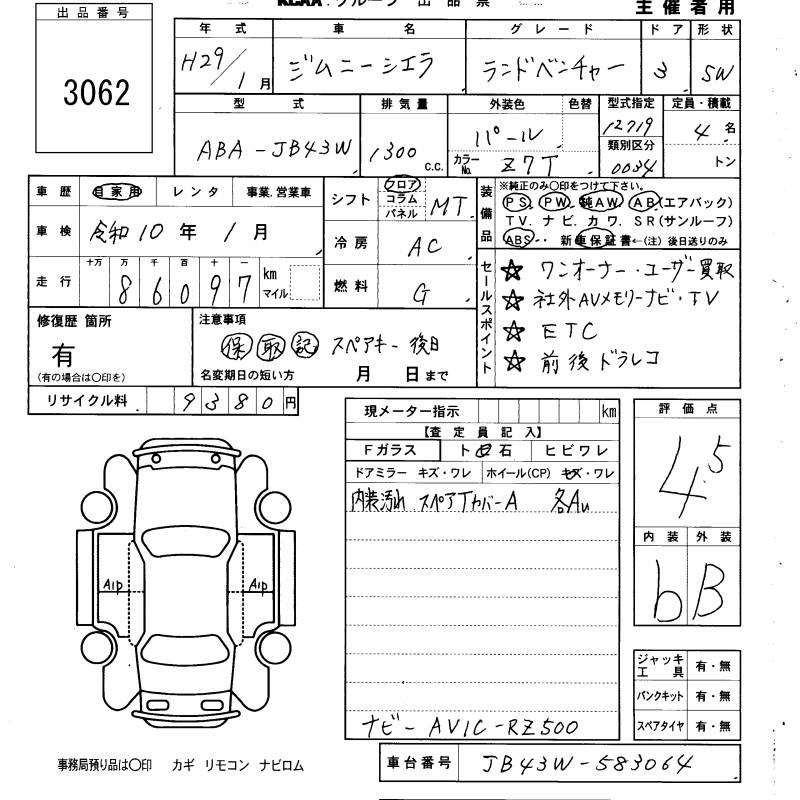 KCAA グループ 出品票
主催者用
出品番号
3062
年式 車名 グレード ドア 形状
H29/1月 ジムニーシエラ ランドベンチャー 3 SW
型式 排気量 外装色 色替 型式指定 定員・積載
ABA-JB43W 1300 c.c. パール 12719 4名
カラーNo. Z7T 類別区分 0034 トン
車歴 自家用 レンタ 事業.営業車
車検 令和10年1月
走行 十万 万 千 百 十 一 km マイル
86097
シフト フロア コラム パネル MT
冷房 AC
燃料 G
装備品
※純正のみ〇印をつけて下さい。
PS. PW. 純AW. AB(エアバック)
TV. ナビ. カワ. SR(サンルーフ)
ABS・・ 新車保証書←(注)後日送りのみ
セールスポイント
☆ ワンオーナー・ユーザー買取
☆ 社外AVメモリーナビ・TV
☆ ETC
☆ 前後ドラレコ
修復歴 箇所
有
(有の場合は〇印を)
注意事項
保 取 記 スペアキー後日
名変期日の短い方 月 日まで
リサイクル料 9380円
現メーター指示 km
【査定員記入】
Fガラス ト石 ヒビワレ
ドアミラー キズ・ワレ ホイール(CP) キズ・ワレ
内装汚れ スペアTカバーA 各AU
ナビー AVIC-RZ500
評価点
4.5
内装 外装
b B
ジャッキ工具 有・無
パンクキット 有・無
スペアタイヤ 有・無
A1P A1P
事務局預り品は〇印 カギ リモコン ナビロム
車台番号 JB43W-583064